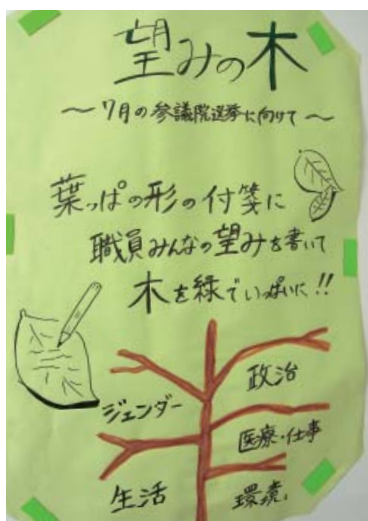 望みの木
〜7月の参議院選挙に向けて〜
葉っぱの形の付箋に
職員みんなの望みを書いて
木を緑でいっぱいに!!
政治
ジェンダー
医療・仕事
生活
環境